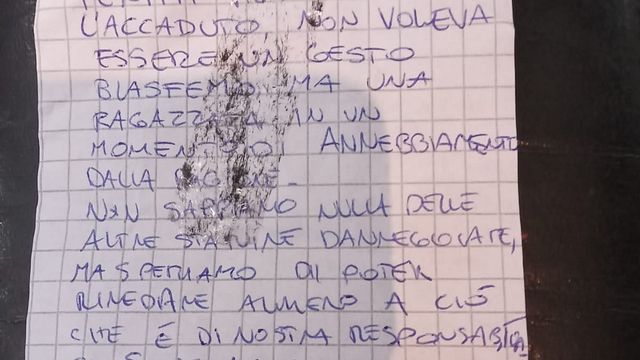 L'ACCADUTO, NON VOLEVA
ESSERE UN GESTO
BLASFEMO, MA UNA
RAGAZZATA IN UN
MOMENTO DI ANNEBBIAMENTO
DALLA
NON SAPPIAMO NULLA DELLE
ALTRE STATUINE DANNEGGIATE,
MA SPERIAMO DI POTER
RIMEDIARE ALMENO A CIÒ
CHE È DI NOSTRA